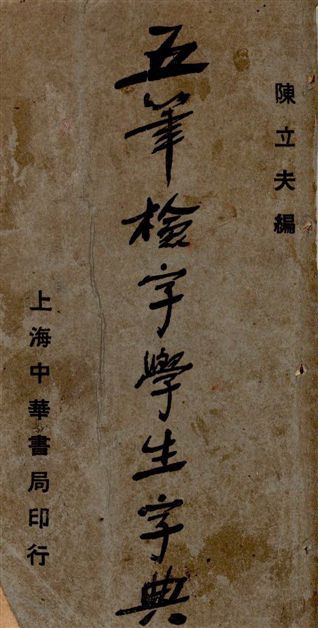 陳立夫編
五筆檢字學生字典
上海中華書局印行